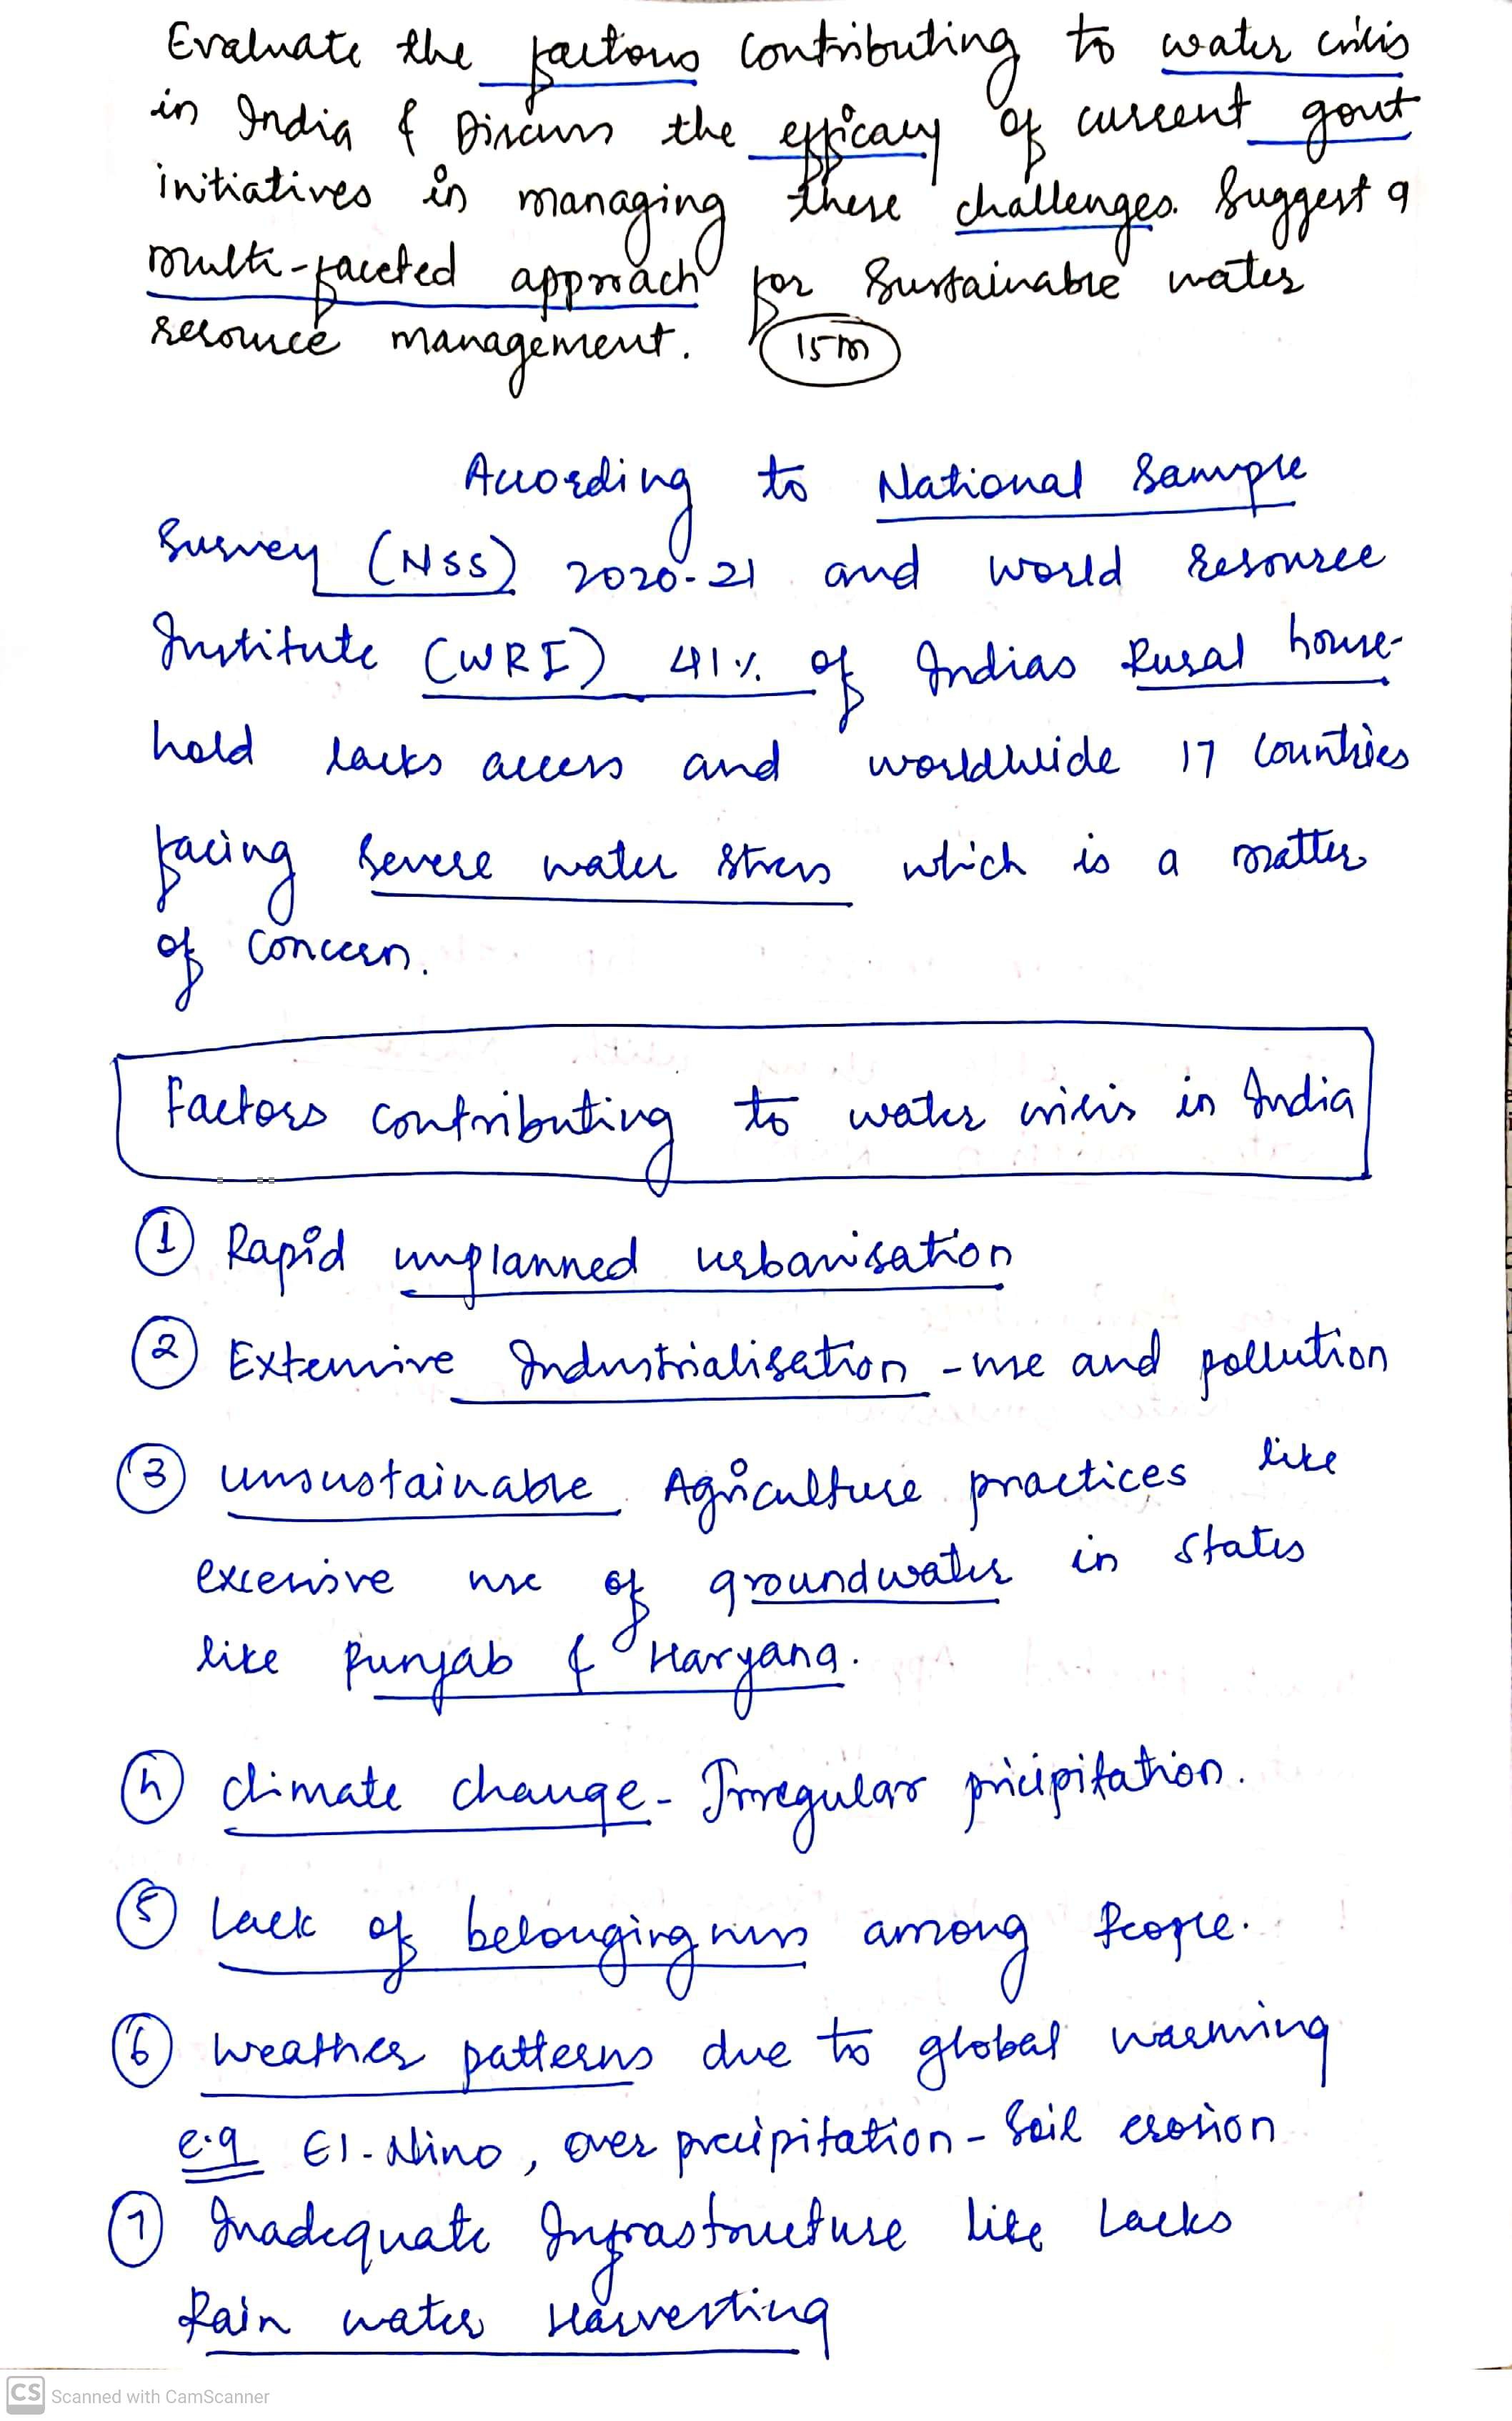 Evaluate the factors contributing to water crisis
in India & Discuss the efficacy of current govt
initiatives in managing these challenges. Suggest a
multi-faceted approach for Sustainable water
resource management. 15m
According to National Sample
Survey (NSS) 2020-21 and world resource
Institute (WRI) 41% of Indias Rural house-
hold lacks access and worldwide 17 countries
facing severe water stress which is a matter
of concern.
Factors contributing to water crisis in India
1 Rapid unplanned urbanisation
2 Extensive Industrialisation - use and pollution
3 unsustainable Agriculture practices like
excessive use of groundwater in states
like Punjab & Haryana.
4 climate change - Irregular pricipitation.
5 lack of belongingness among People.
6 weather patterns due to global warming
e.g El-Nino, over precipitation - Soil erosion
7 Inadequate Infrastructure like lacks
Rain water Harvesting
CS Scanned with CamScanner